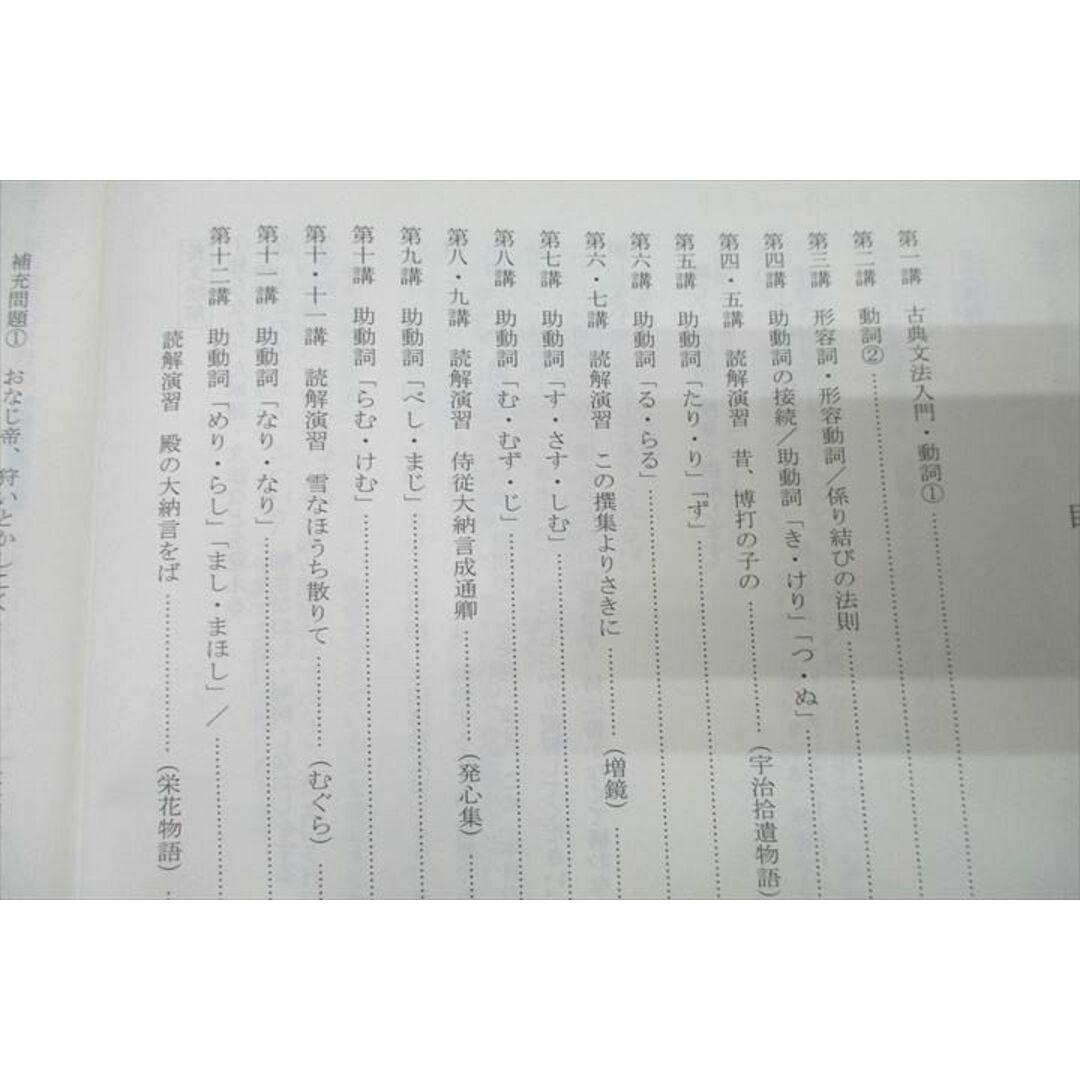 目
第一講　古典文法入門・動詞①…………
第二講　動詞②…………
第三講　形容詞・形容動詞／係り結びの法則…………
第四講　助動詞の接続／助動詞「き・けり」「つ・ぬ」…………
第四・五講　読解演習　昔、博打の子の…………（宇治拾遺物語）
第五講　助動詞「たり・り」「ず」…………
第六講　助動詞「る・らる」…………
第六・七講　読解演習　この撰集よりさきに…………（増鏡）…………
第七講　助動詞「す・さす・しむ」…………
第八講　助動詞「む・むず・じ」…………
第八・九講　読解演習　侍従大納言成通卿…………（発心集）…………
第九講　助動詞「べし・まじ」…………
第十講　助動詞「らむ・けむ」…………
第十・十一講　読解演習　雪なほうち散りて…………（むぐら）…………
第十一講　助動詞「なり・なり」…………
第十二講　助動詞「めり・らし」「まし・まほし」／…………
読解演習　殿の大納言をば…………（栄花物語）…………
補充問題①　おなじ帝、狩いとかしこく